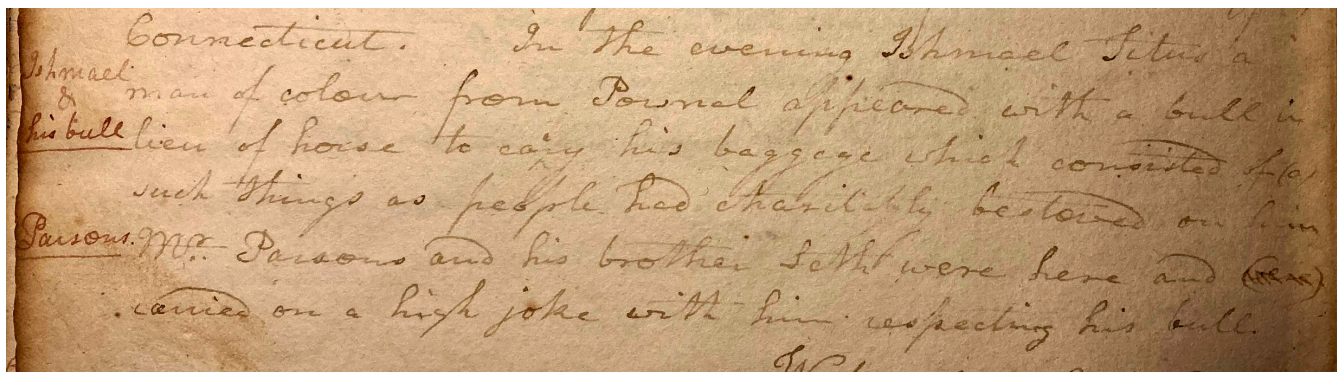 Connecticut. In the evening Ishmael Titus a
Ishmael
&
his bull
man of colour from Pownal appeared with a bull in
lieu of horse to cary his baggage which consisted of (a)
such things as people had charitably bestowed on him
Parsons.
Mr. Parsons and his brother Seth were here and
carried on a high joke with him respecting his bull.